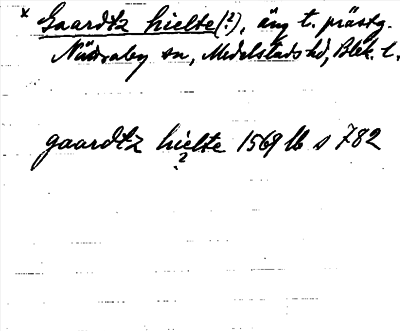 × Gaardtz hielte(?), äng t. prästg.
Nättraby sn, Medelstads hd, Blek. l.
gaardtz hielte 1569 lb s 782
?